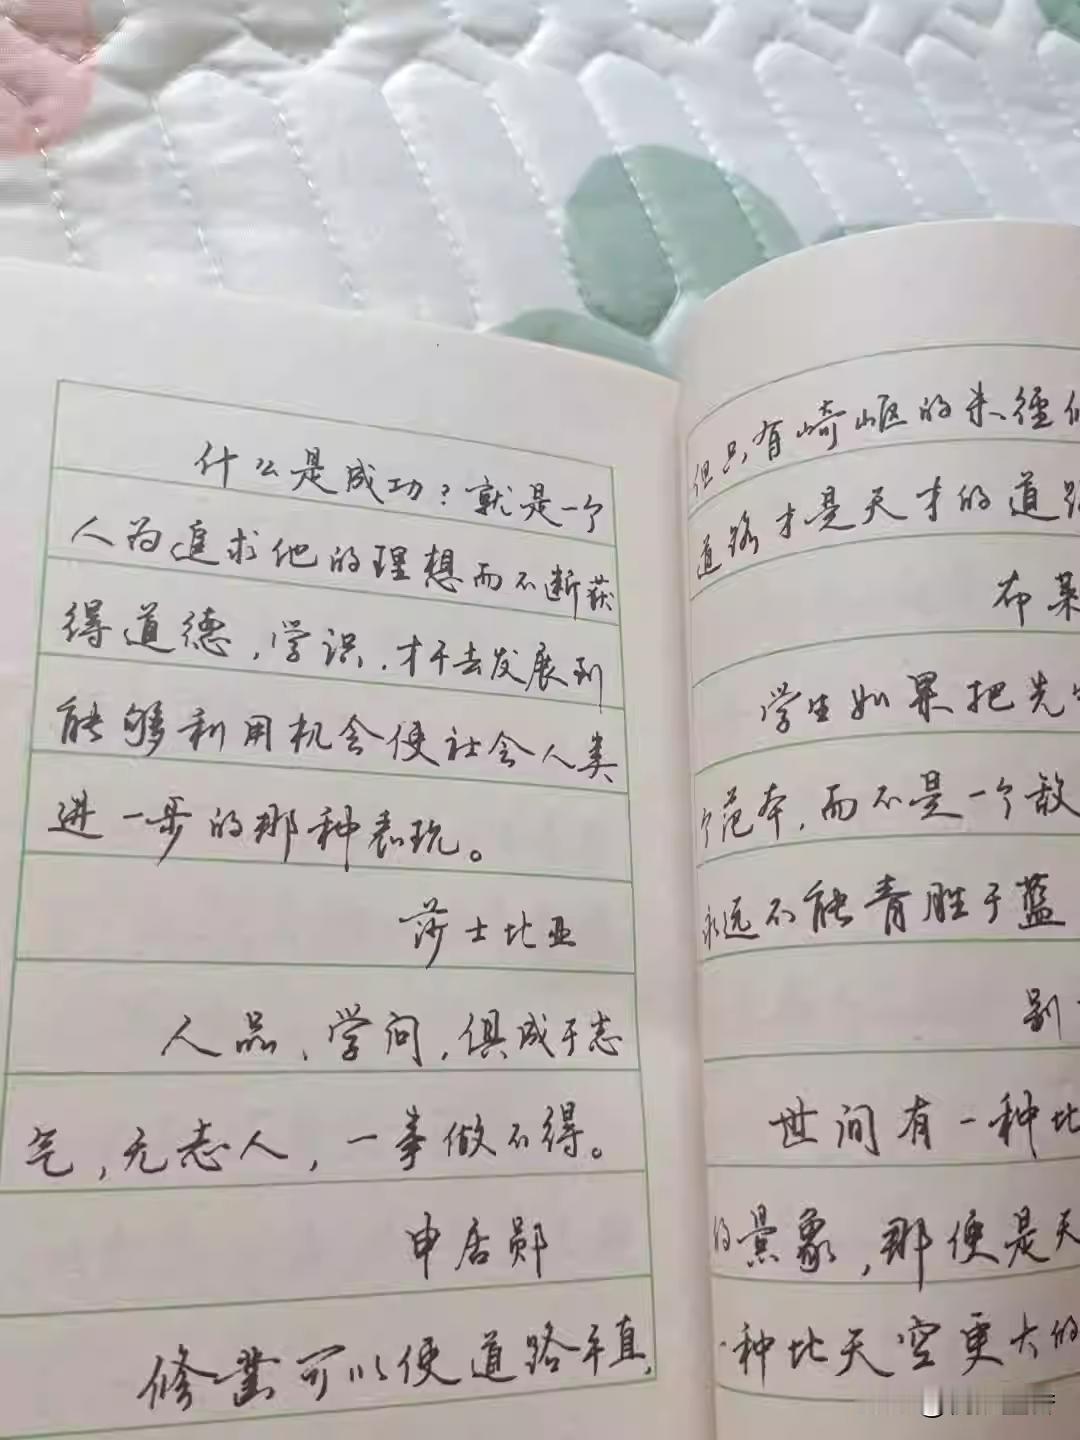 什么是成功？就是一个
人为追求他的理想而不断获
得道德，学识，才干去发展到
能够利用机会使社会人类
进一步的那种表现。
莎士比亚
人品、学问，俱成于志
气，无志人，一事做不得。
申居郧
修业可以使道路平直，
但只有崎岖的未经
道路才是天才的道路
布莱
学生如果把先生
个范本，而不是一个敌
永远不能青胜于蓝
别
世间有一种比
的景象，那便是天
一种比天空更大的